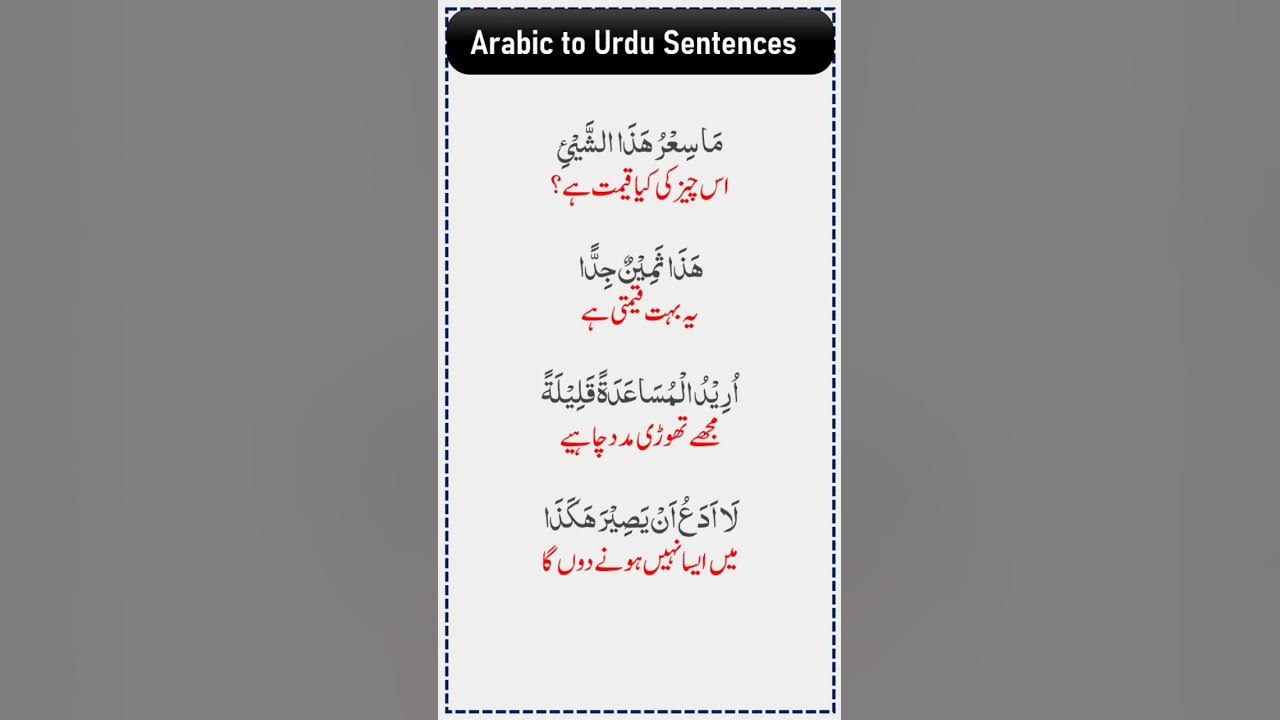 Arabic to Urdu Sentences
مَا سِعْرُ هَذَا الشَّيْئِ
اس چیز کی کیا قیمت ہے؟
هَذَا ثَمِيْنٌ جِدًّا
یہ بہت قیمتی ہے
اُرِيْدُ الْمُسَاعَدَةً قَلِيْلَةً
مجھے تھوڑی مدد چاہیے
لَا اَدَعُ اَنْ يَصِيْرَ هَكَذَا
میں ایسا نہیں ہونے دوں گا